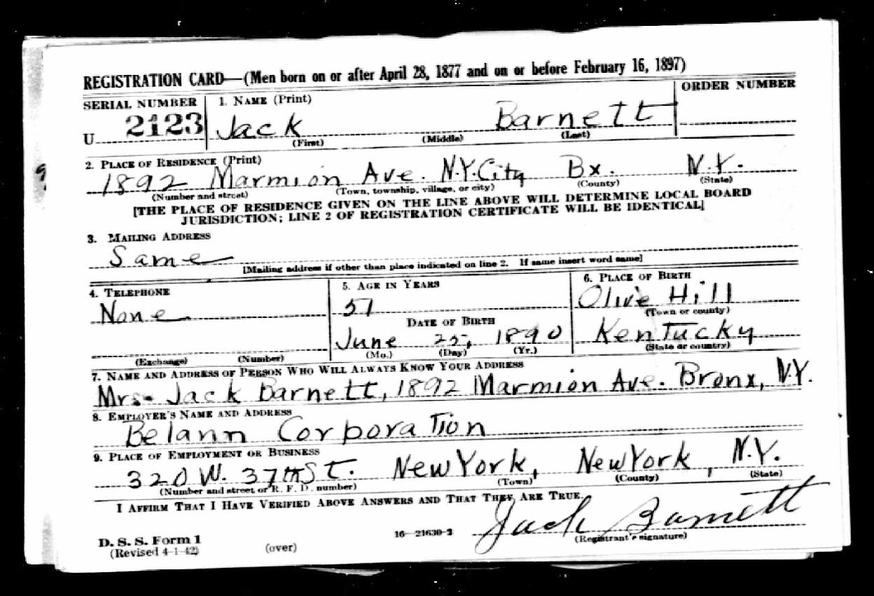 REGISTRATION CARD—(Men born on or after April 28, 1877 and on or before February 16, 1897)
SERIAL NUMBER 1. NAME (Print) ORDER NUMBER
U 2123 Jack Barnett
(First) (Middle) (Last)
2. PLACE OF RESIDENCE (Print)
1892 Marmion Ave. N.Y.City Bx. N.Y.
(Number and street) (Town, township, village, or city) (County) (State)
[THE PLACE OF RESIDENCE GIVEN ON THE LINE ABOVE WILL DETERMINE LOCAL BOARD
JURISDICTION; LINE 2 OF REGISTRATION CERTIFICATE WILL BE IDENTICAL]
3. MAILING ADDRESS
Same
[Mailing address if other than place indicated on line 2. If same insert word same]
4. TELEPHONE 5. AGE IN YEARS 6. PLACE OF BIRTH
None 51 Olive Hill
DATE OF BIRTH (Town or county)
June 25, 1890 Kentucky
(Exchange) (Number) (Mo.) (Day) (Yr.) (State or country)
7. NAME AND ADDRESS OF PERSON WHO WILL ALWAYS KNOW YOUR ADDRESS
Mrs. Jack Barnett, 1892 Marmion Ave. Bronx, N.Y.
8. EMPLOYER'S NAME AND ADDRESS
Belann Corporation
9. PLACE OF EMPLOYMENT OR BUSINESS
320 W. 37th St. New York, New York, N.Y.
(Number and street or R. F. D. number) (Town) (County) (State)
I AFFIRM THAT I HAVE VERIFIED ABOVE ANSWERS AND THAT THEY ARE TRUE.
Jack Barnett
D. S. S. Form 1 16—21630-2 (Registrant's signature)
(Revised 4-1-42) (over)